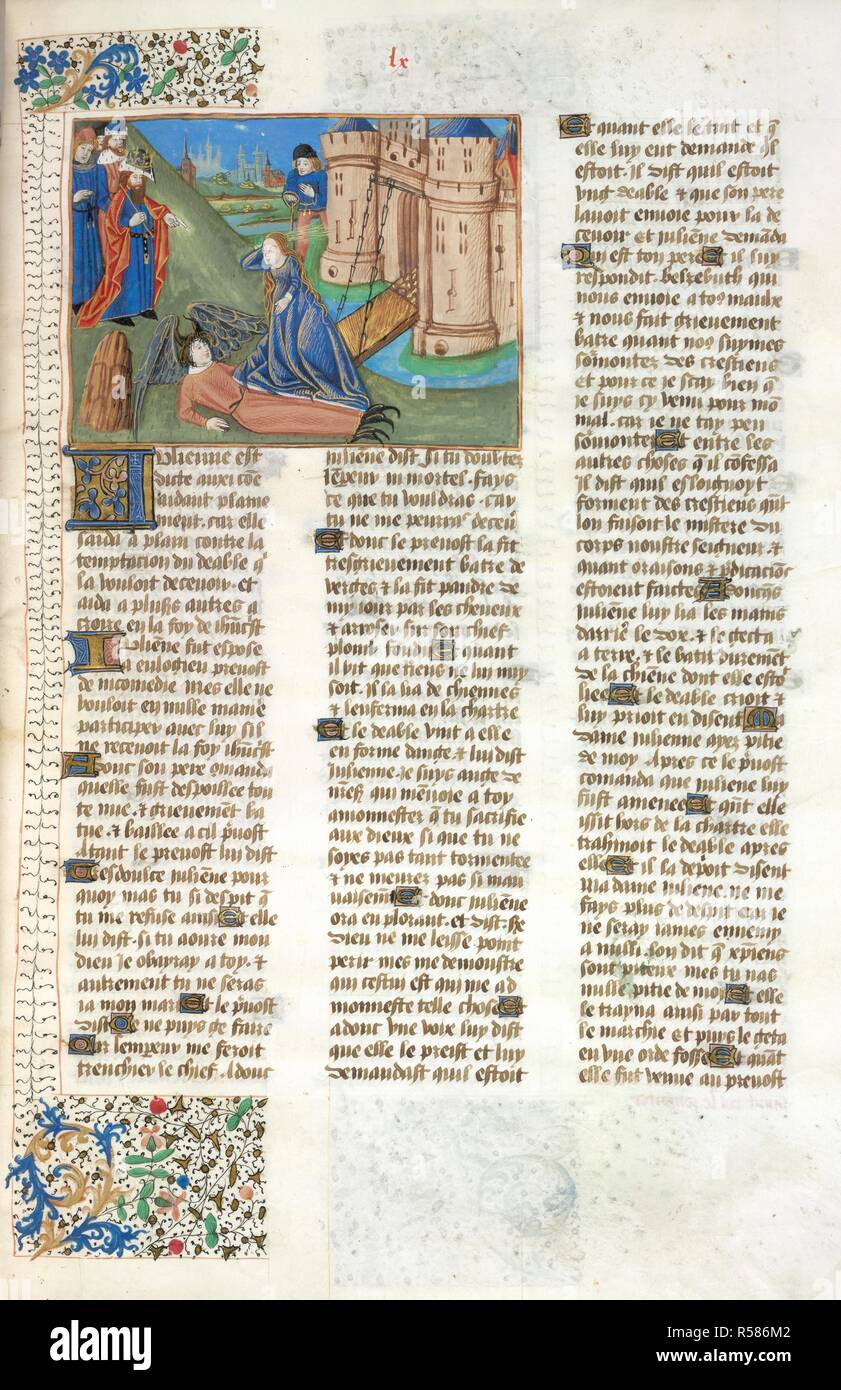 lx
Julienne est
dicte auxi cõe
ardant plaine
ment. car elle
sardi a plain contre la
temptacion du deable q̃
la vouloit decevoir. et
aida a plus̃s autres a
croire en la foy de ihũcst
Julienne fut espose
a eulogieu prevost
de nicomedie mes elle ne
vouloit en nulle manie
participer avec luy sil
ne recevoit la foy ihũcst
Adonc son pere cõmanda
quelle fust despoillee tou
te nue. & grievement ba
tue. & baillee a cil p̃vost
Atant le prevost lui dist
Tresdoulce iulienne pour
quoy mas tu si despit q̃
tu me refuse ainsi Et elle
lui dist. si tu aoure mon
dieu Je obayray a toy. &
autrement tu ne seras
ia mon mary Et le p̃vost
dist Je ne puys ce faire
Car lempeur me feroit
trenchier le chief. Adonc
iulienne dist. Si tu doubtez
lempeur mortel. fays
ce que tu vouldras. Car
tu ne me pourras decevoir
Et donc le prevost la fit
tresgrievement batre de
verges & la fit pandre de
my iour par ses cheveux
& arroser sur son chief
plomb fondu Et quant
il vit que riens ne lui nuy
soit. il la lia de chiennes
& lenferma en la chartre
Et le deable vint a elle
en forme dange. & lui dist
Julienne. Je suys ange de
nreŝ qui menvoie a toy
amonnester q̃ tu sacrifie
aux dieux si que tu ne
soyes pas tant tormentee
& ne meurez pas si mau
vaisemt̃ Et donc iuliẽne
ora en plorant. et dist. Sire
dieu ne me leisse point
perir mes me demonstre
qui cestui est qui me ad
monneste telle chose Et
adonc vne voix luy dist
que elle le preist et luy
demandast quil estoit
Et quant elle le tint et q̃
elle luy eut demande q̃l
estoit. Il dist quil estoit
vng deable & que son pere
lavoit envoie pour la de
cevoir Et iuliẽne demãda
Qui est ton pere Et il luy
respondit. belzebuth qui
nous envoie a toˀ maulx
& nous fait grievement
batre quant noˀ suymes
sõmontez des crestiens
Et pour ce je scay bien q̃
je suys cy venu pour mon
mal. car je ne tay peu
sõmonter Et entre les
autres choses q̃ il confessa
Il dist quil esloignoyt
forment des crestiens qñt
lon faisoit le mistere du
corps noustre seigneur. &
quant oraisons & p̃dicaciõs
estoient faictes Adoncqs
iuliẽne luy lia les mains
darrie̾ le dox. & le gecta
a terre. & le batu duremẽt
de la chiẽne dont elle esto
liee Et le deable crioit &
luy prioit en disent Ma
dame iulienne ayez pitie
de moy. Apres ce le p̃vost
comanda que iulienne luy
fust amenee Et qñt elle
issit hors de la chartre elle
trahinoit le deable apres
elle Et il la deproit disent
Ma dame iuliẽne. ne me
fays plus de despit car ie
ne seray iames ennemy
a nulli. lon dit q̃ xp̃iens
sont piteux mes tu nas
nulle pitie de moy Et elle
le trayna ainsi par tout
le marchie Et puys le geta
en vne orde fosse Et quãt
elle fut venue au prevost